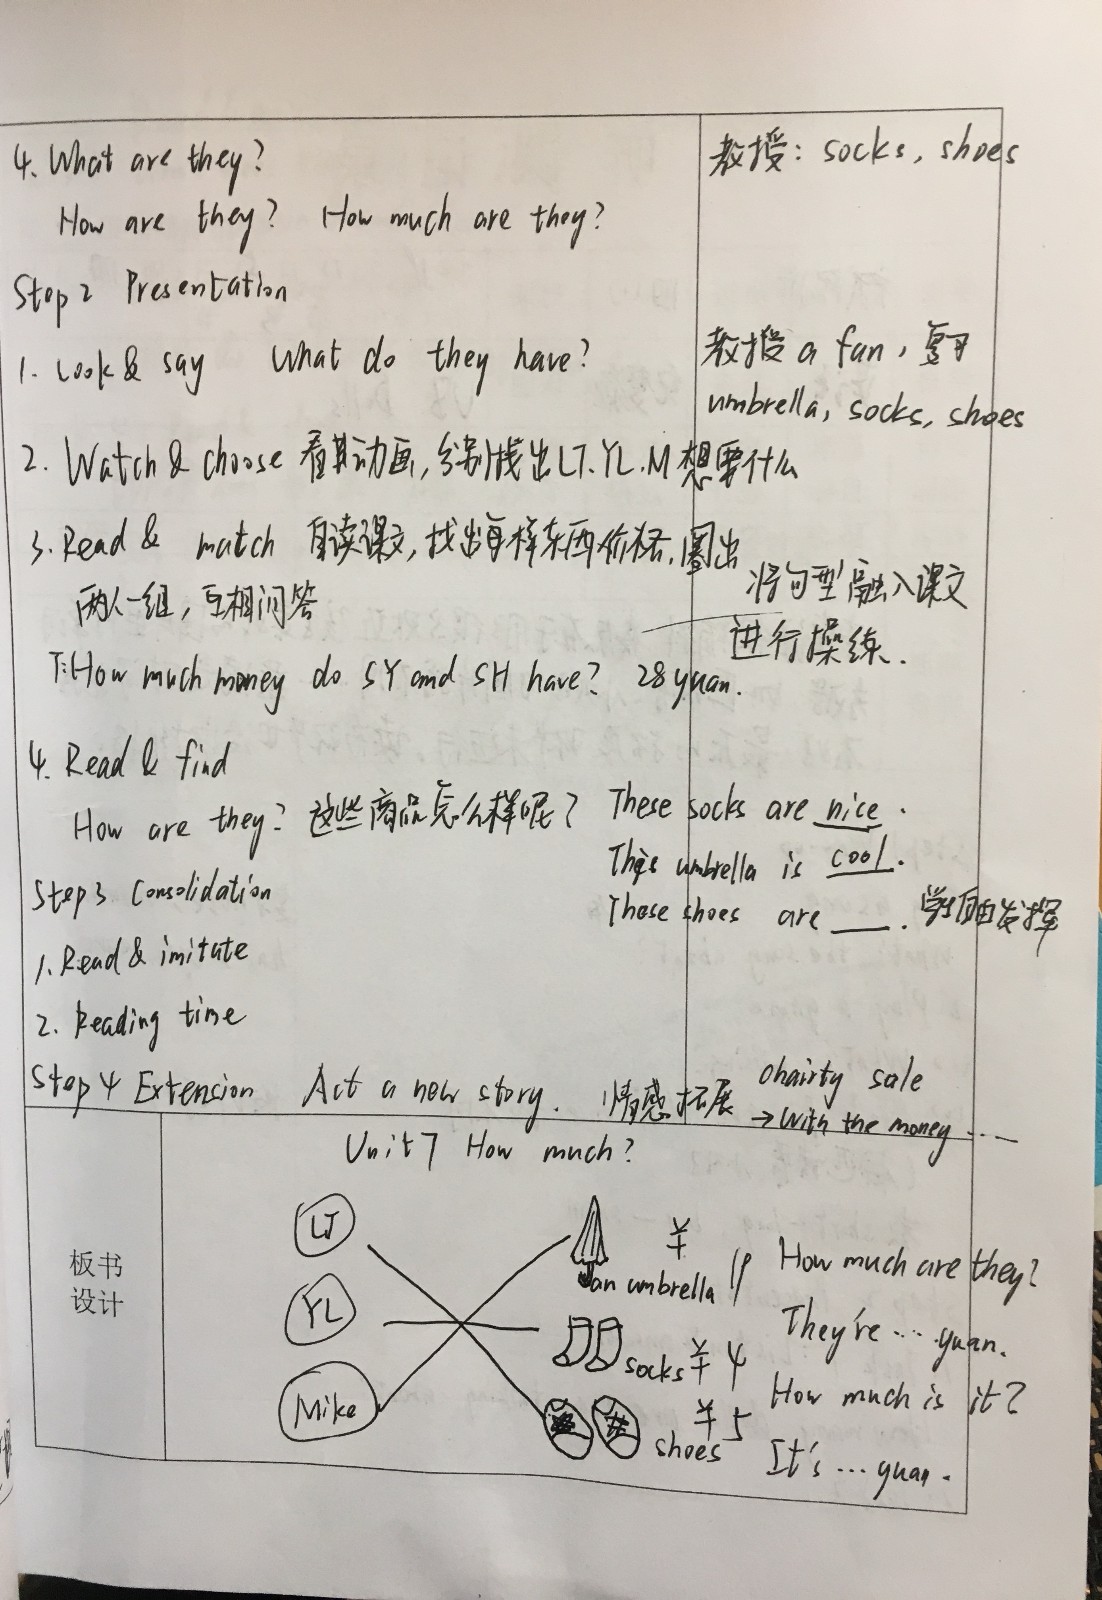 4. What are they?
教授: socks, shoes
How are they? How much are they?
Step 2 Presentation
1. Look & say What do they have?
教授 a fan, 复习
umbrella, socks, shoes
2. Watch & choose 看其动画, 分别找出LT. YL. M 想要什么
3. Read & match 自读课文, 找出每样东西价格, 圈出
将句型融入课文
两人一组, 互相问答
进行操练.
T: How much money do SY and SH have? 28 yuan.
4. Read & find
How are they? 这些商品怎么样呢? These socks are nice.
This umbrella is cool.
Step 3. Consolidation
These shoes are ___. 学生自由发挥
1. Read & imitate
2. Reading time
Step 4 Extension Act a new story. 情感拓展 chairty sale
→ With the money ...
Unit 7 How much?
板书
设计
LT
YL
Mike
an umbrella
¥ 11
socks ¥ 4
shoes ¥ 5
How much are they?
They're ... yuan.
How much is it?
It's ... yuan.